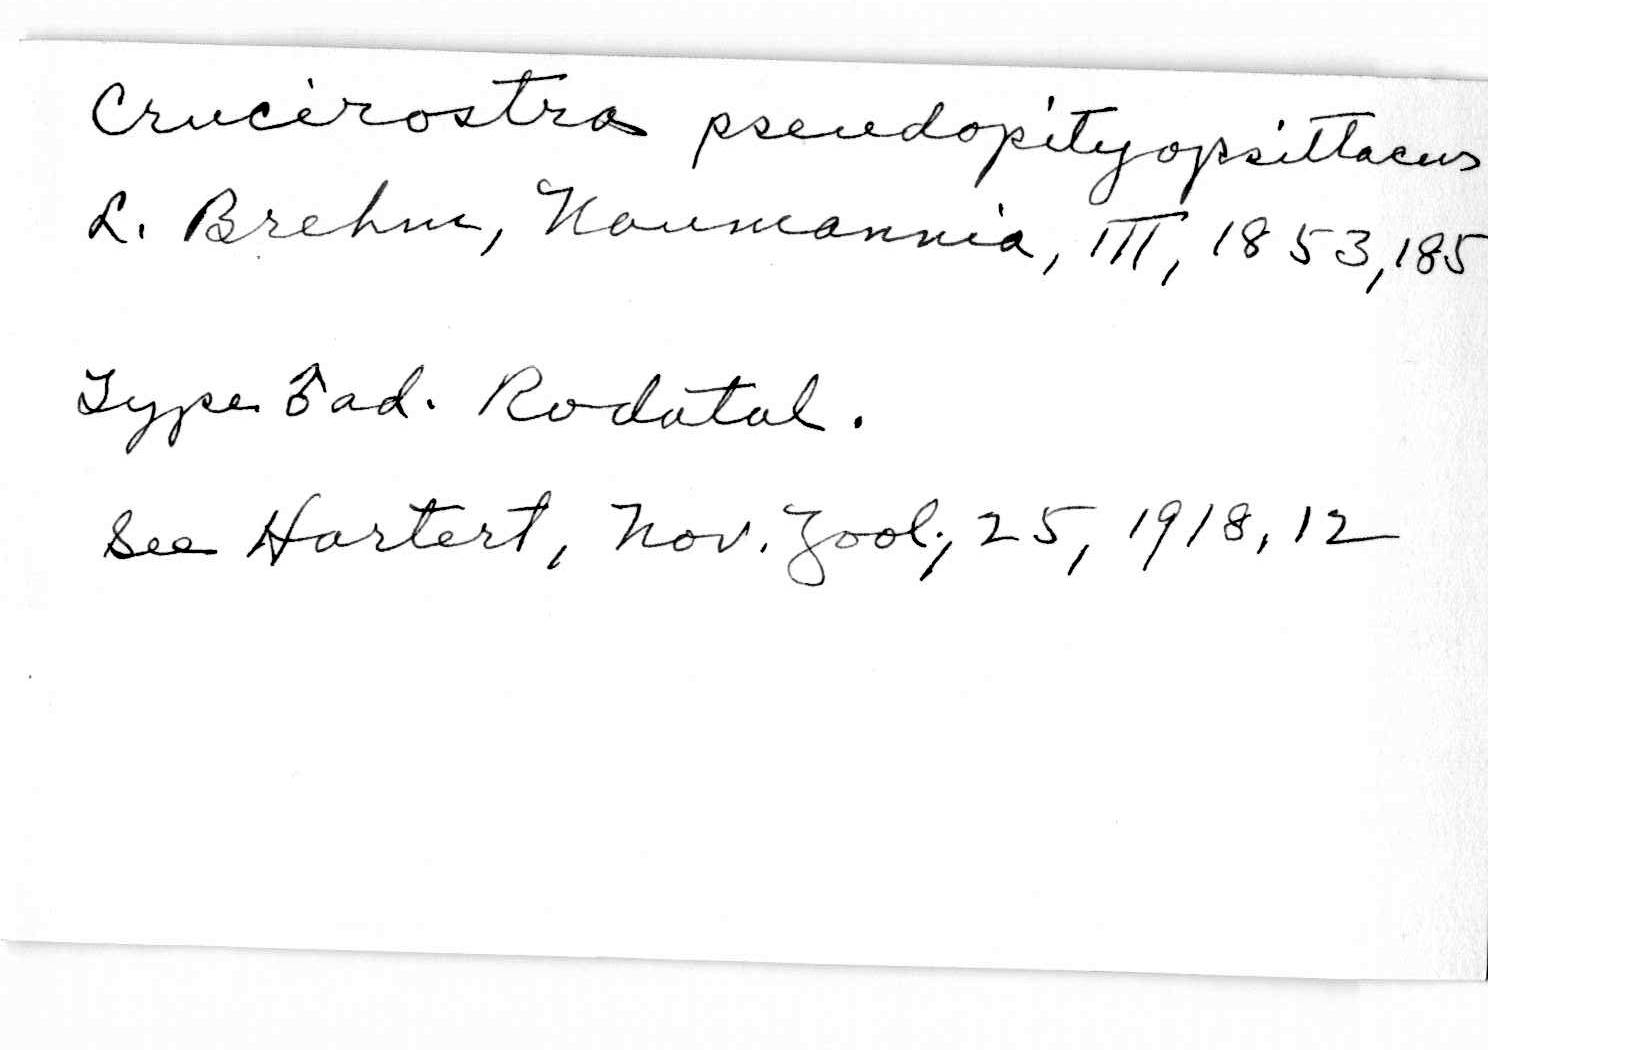 Crucirostra pseudopityopsittacus
L. Brehm, Naumannia, III, 1853, 185
Type ♂ ad. Rodatal.
See Hartert, Nov. Zool., 25, 1918, 12